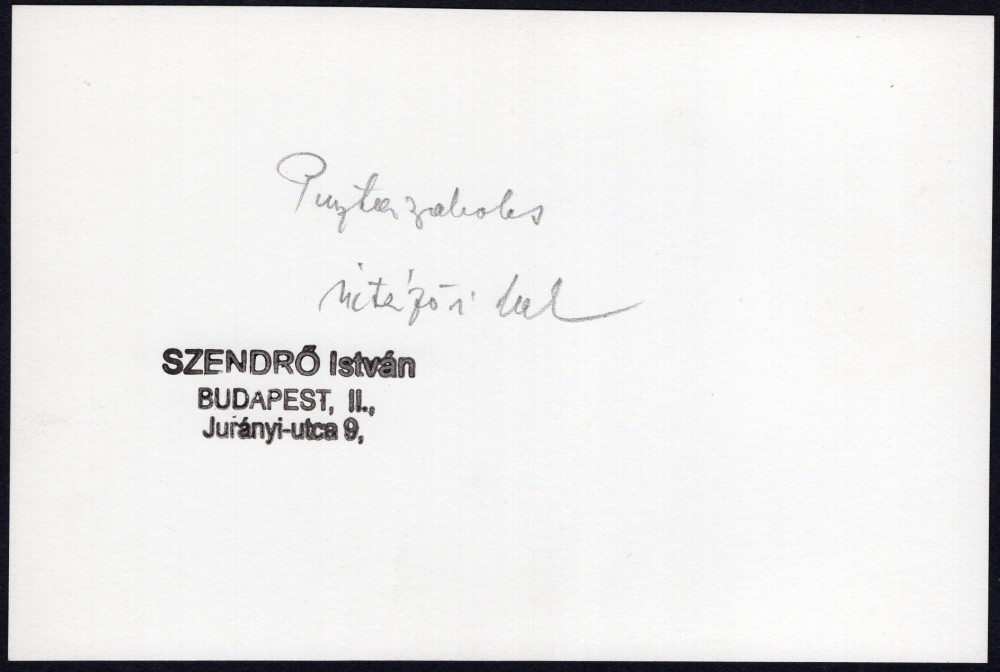 Pusztaszabolcs
intézői lak
SZENDRŐ István
BUDAPEST, II.,
Jurányi-utca 9,